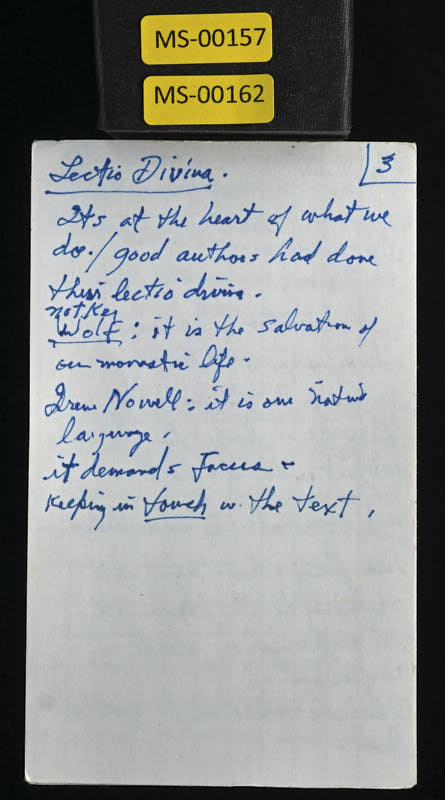 MS-00157
MS-00162
Lectio Divina.
3
Its at the heart of what we
do. / good authors had done
their lectio divina.
Notker
Wolf : it is the salvation of
our monastic life.
Irene Nowell : it is our native
language.
it demands focus -
Keeping in touch w. the text,